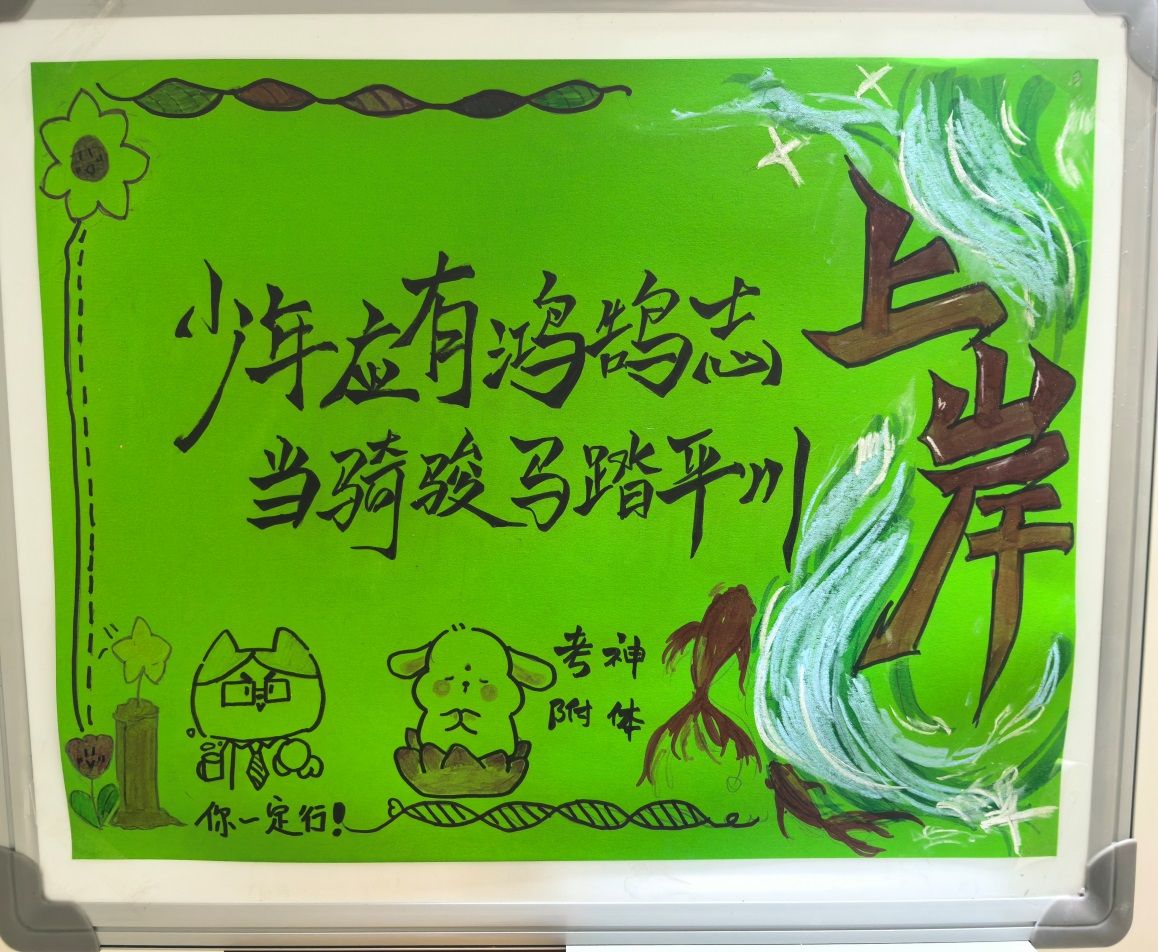 少年应有鸿鹄志
当骑骏马踏平川
上岸
考神
附体
你一定行!